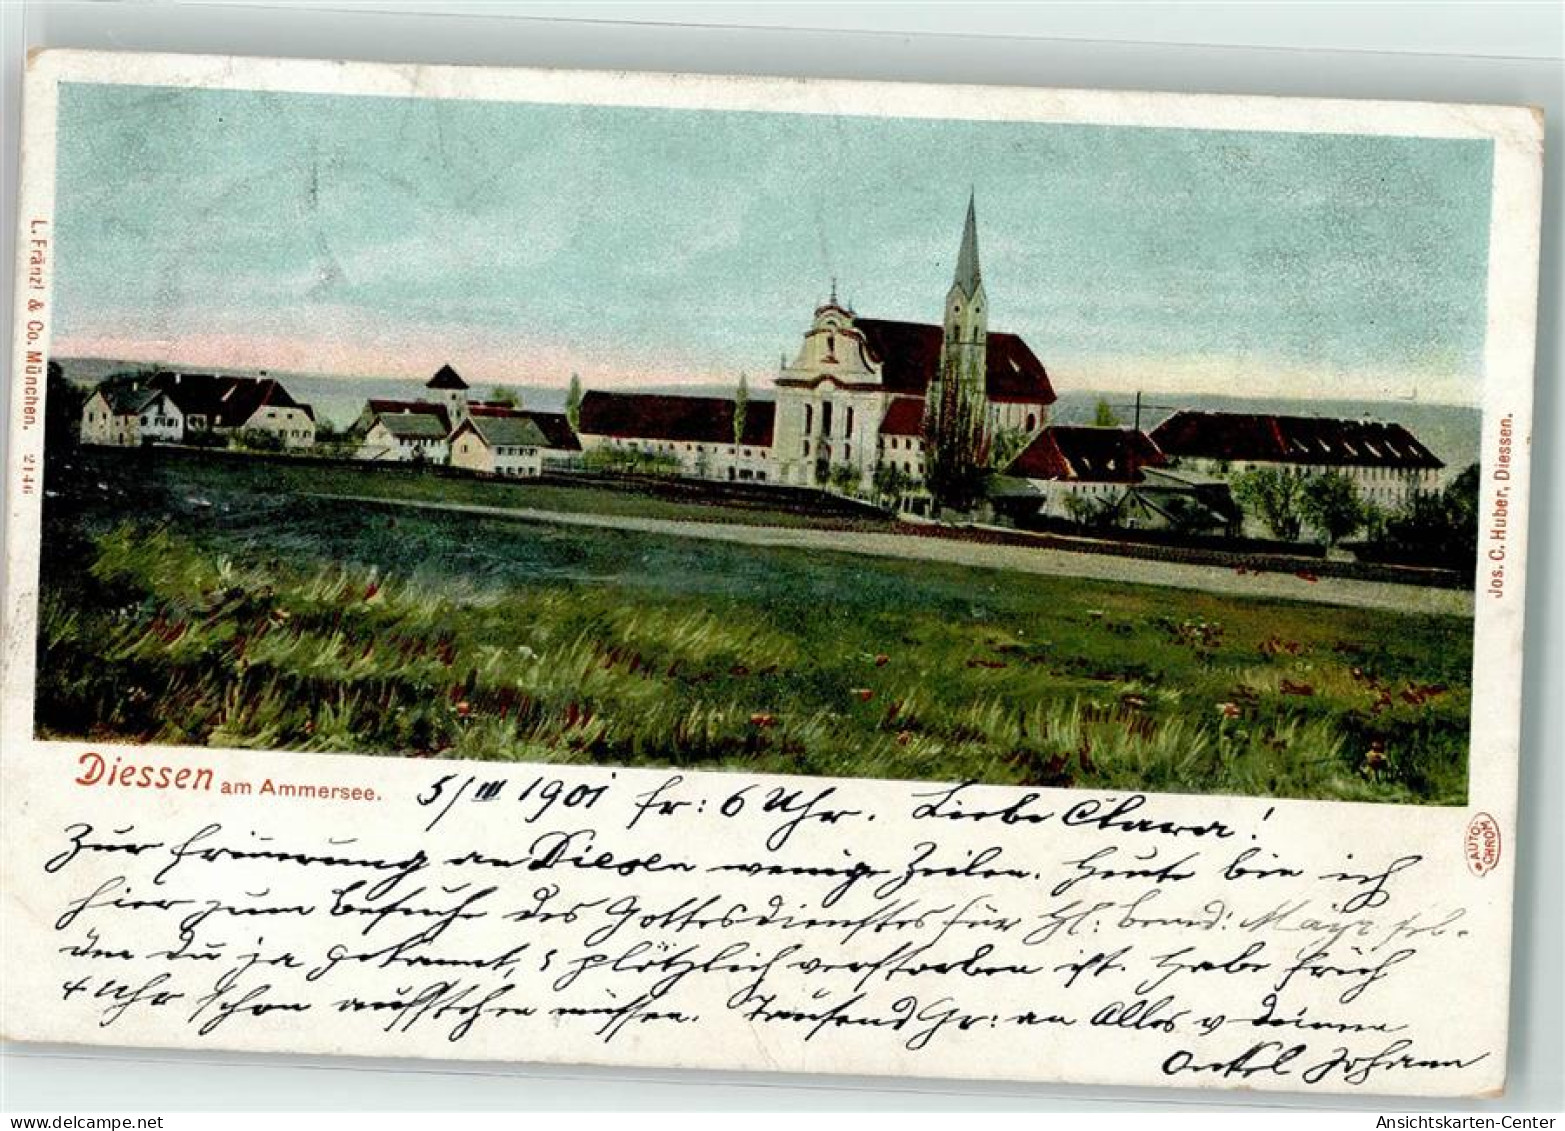 L. Fränzl & Co. München. 2146
Jos. C. Huber, Diessen.
AUTO-CHROM
Diessen am Ammersee.
5/III 1901 fr: 6 Uhr. Liebe Clara!
Zur Erinnerung an Diesen wenige Zeilen. Heute bin ich
hier zum Besuche des Gottesdienstes für Hl:
du ja gekannt, & plötzlich verstorben ist. Habe früh
4 Uhr schon aufstehen müssen. Tausend Gr: an Alles v deinem
Onkel Johann
Ansichtskarten-Center